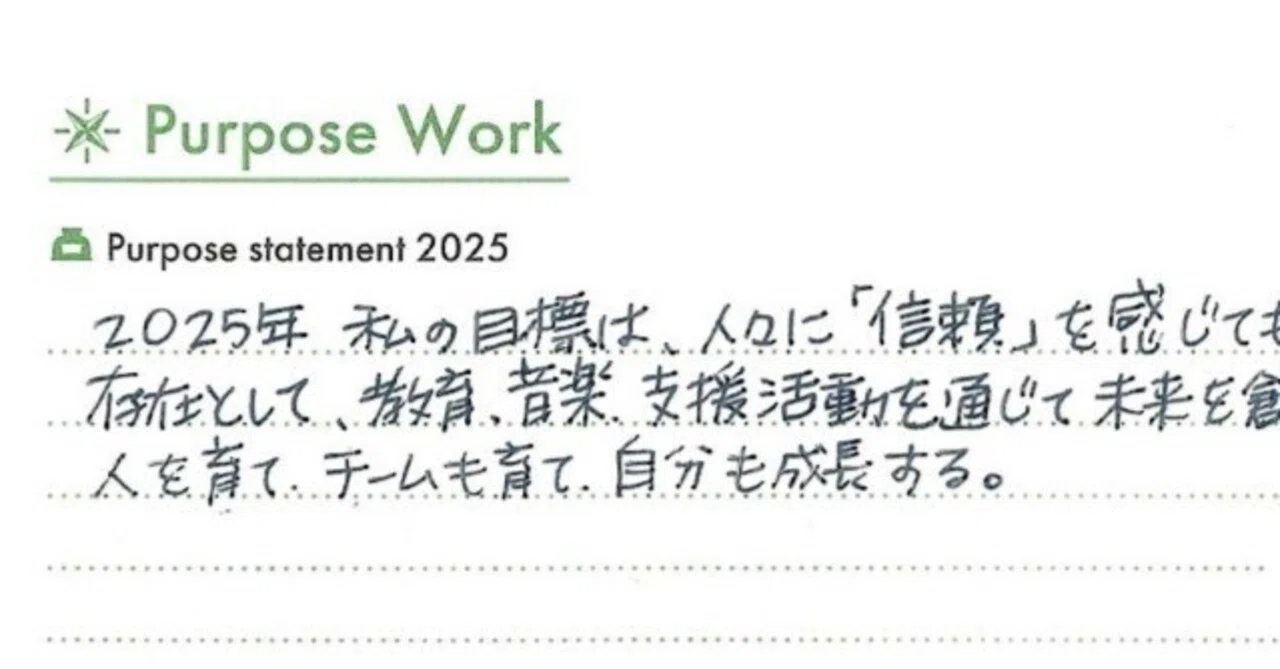 Purpose Work
Purpose statement 2025
2025年 私の目標は、人々に「信頼」を感じても
存在として、教育、音楽、支援活動を通じて未来を創
人を育て、チームも育て、自分も成長する。